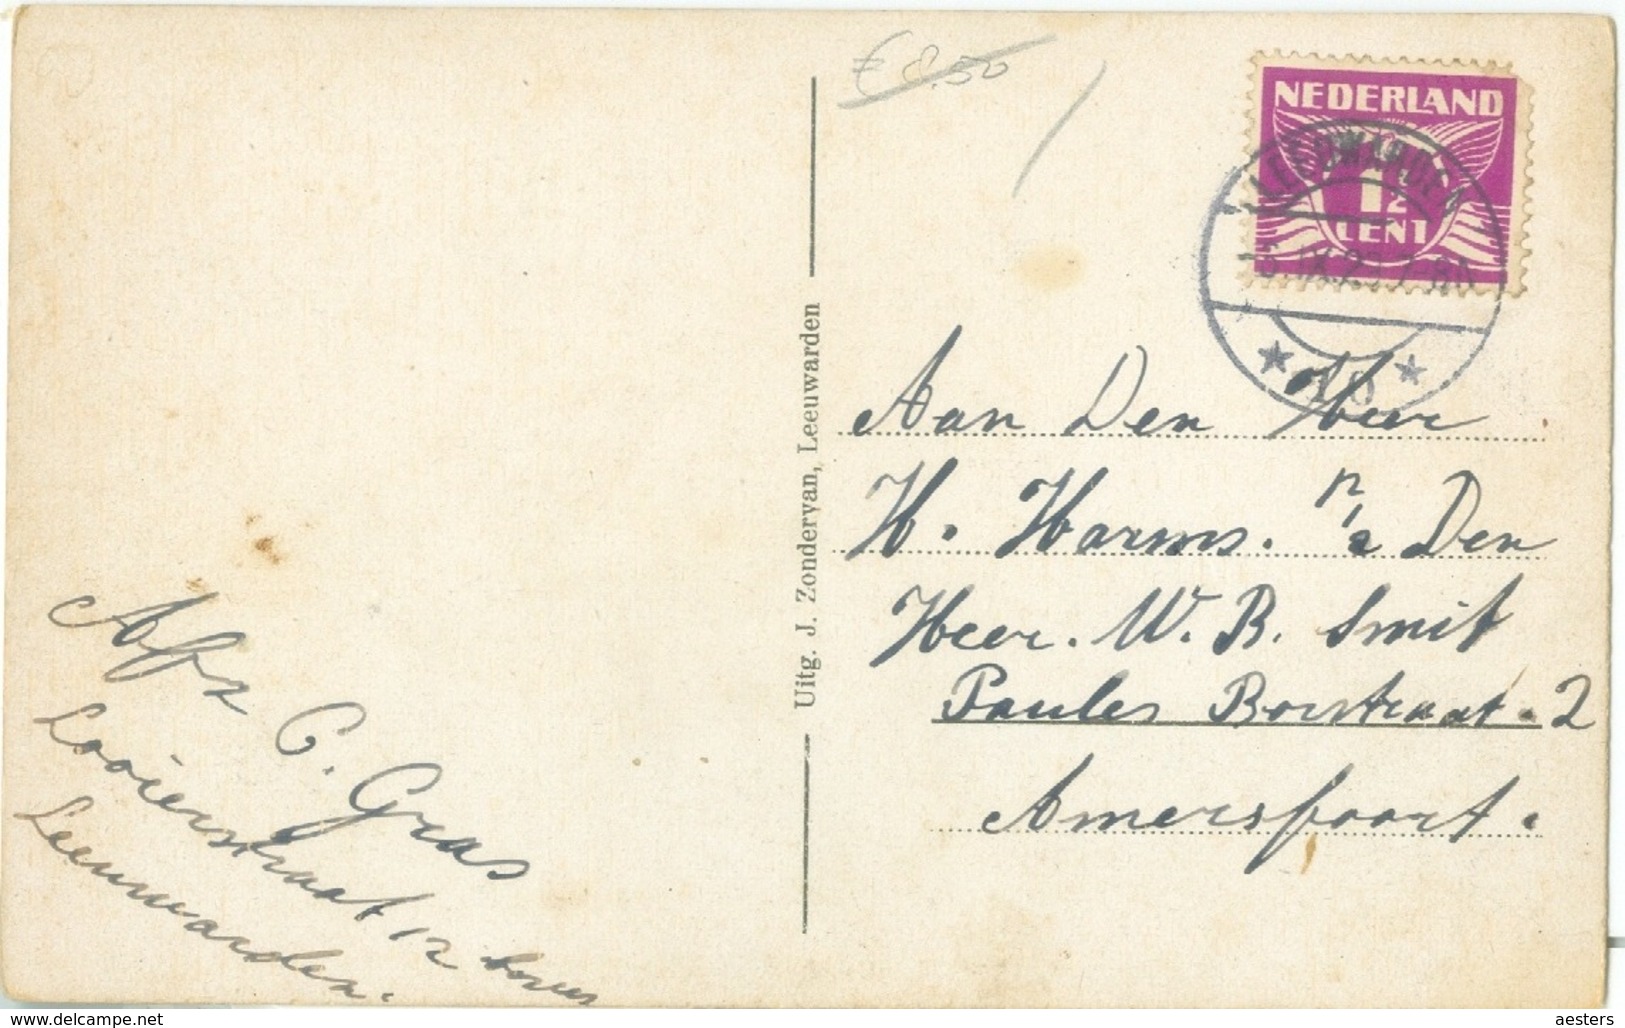 € 8,50
NEDERLAND
1½
CENT
LEEUWARDEN
Uitg. J. Zondervan, Leeuwarden
Aan Den Heer
H. Harms. p/a Den
Heer. W. B. Smit
Paules Borstraat. 2
Amersfoort.
Afz
C. Gras
Looierstraat 12 boven
Leeuwarden.
aesters
www.delcampe.net